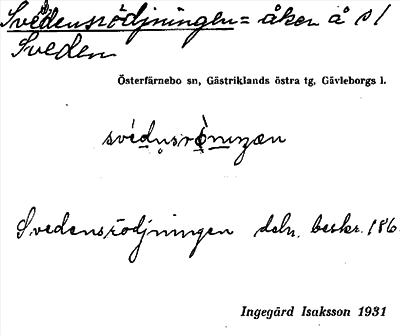 Svedensrödjningen = åker å s/
Sveden
Österfärnebo sn, Gästriklands östra tg, Gävleborgs l.
Svedensrödjningen deln. beskr. 186
Ingegärd Isaksson 1931